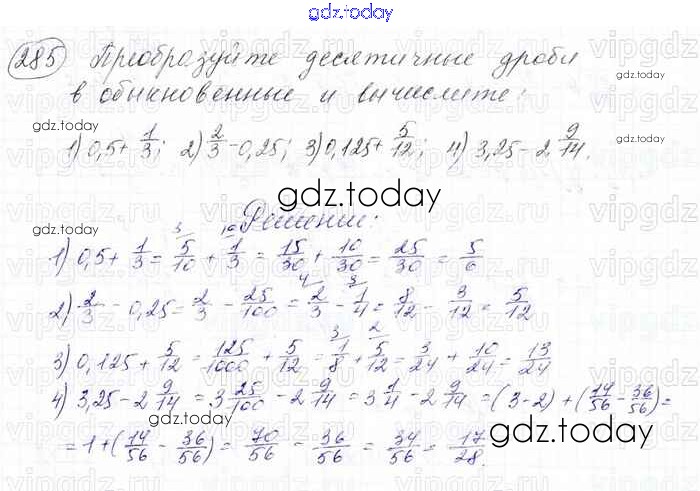 gdz.today
285 Преобразуйте десятичные дроби
в обыкновенные и вычислите:
gdz.today
gdz.today
1) 0,5 + 1/3; 2) 2/3 - 0,25; 3) 0,125 + 5/12; 4) 3,25 - 2 9/14.
gdz.today
Решение:
1) 0,5 + 1/3 = 5/10 + 1/3 = 15/30 + 10/30 = 25/30 = 5/6
2) 2/3 - 0,25 = 2/3 - 25/100 = 2/3 - 1/4 = 8/12 - 3/12 = 5/12
3) 0,125 + 5/12 = 125/1000 + 5/12 = 1/8 + 5/12 = 3/24 + 10/24 = 13/24
4) 3,25 - 2 9/14 = 3 25/100 - 2 9/14 = 3 1/4 - 2 9/14 = (3-2) + (14/56 - 36/56) =
gdz.today
gdz.today
= 1 + (14/56 - 36/56) = 70/56 - 36/56 = 34/56 = 17/28.
gdz.today